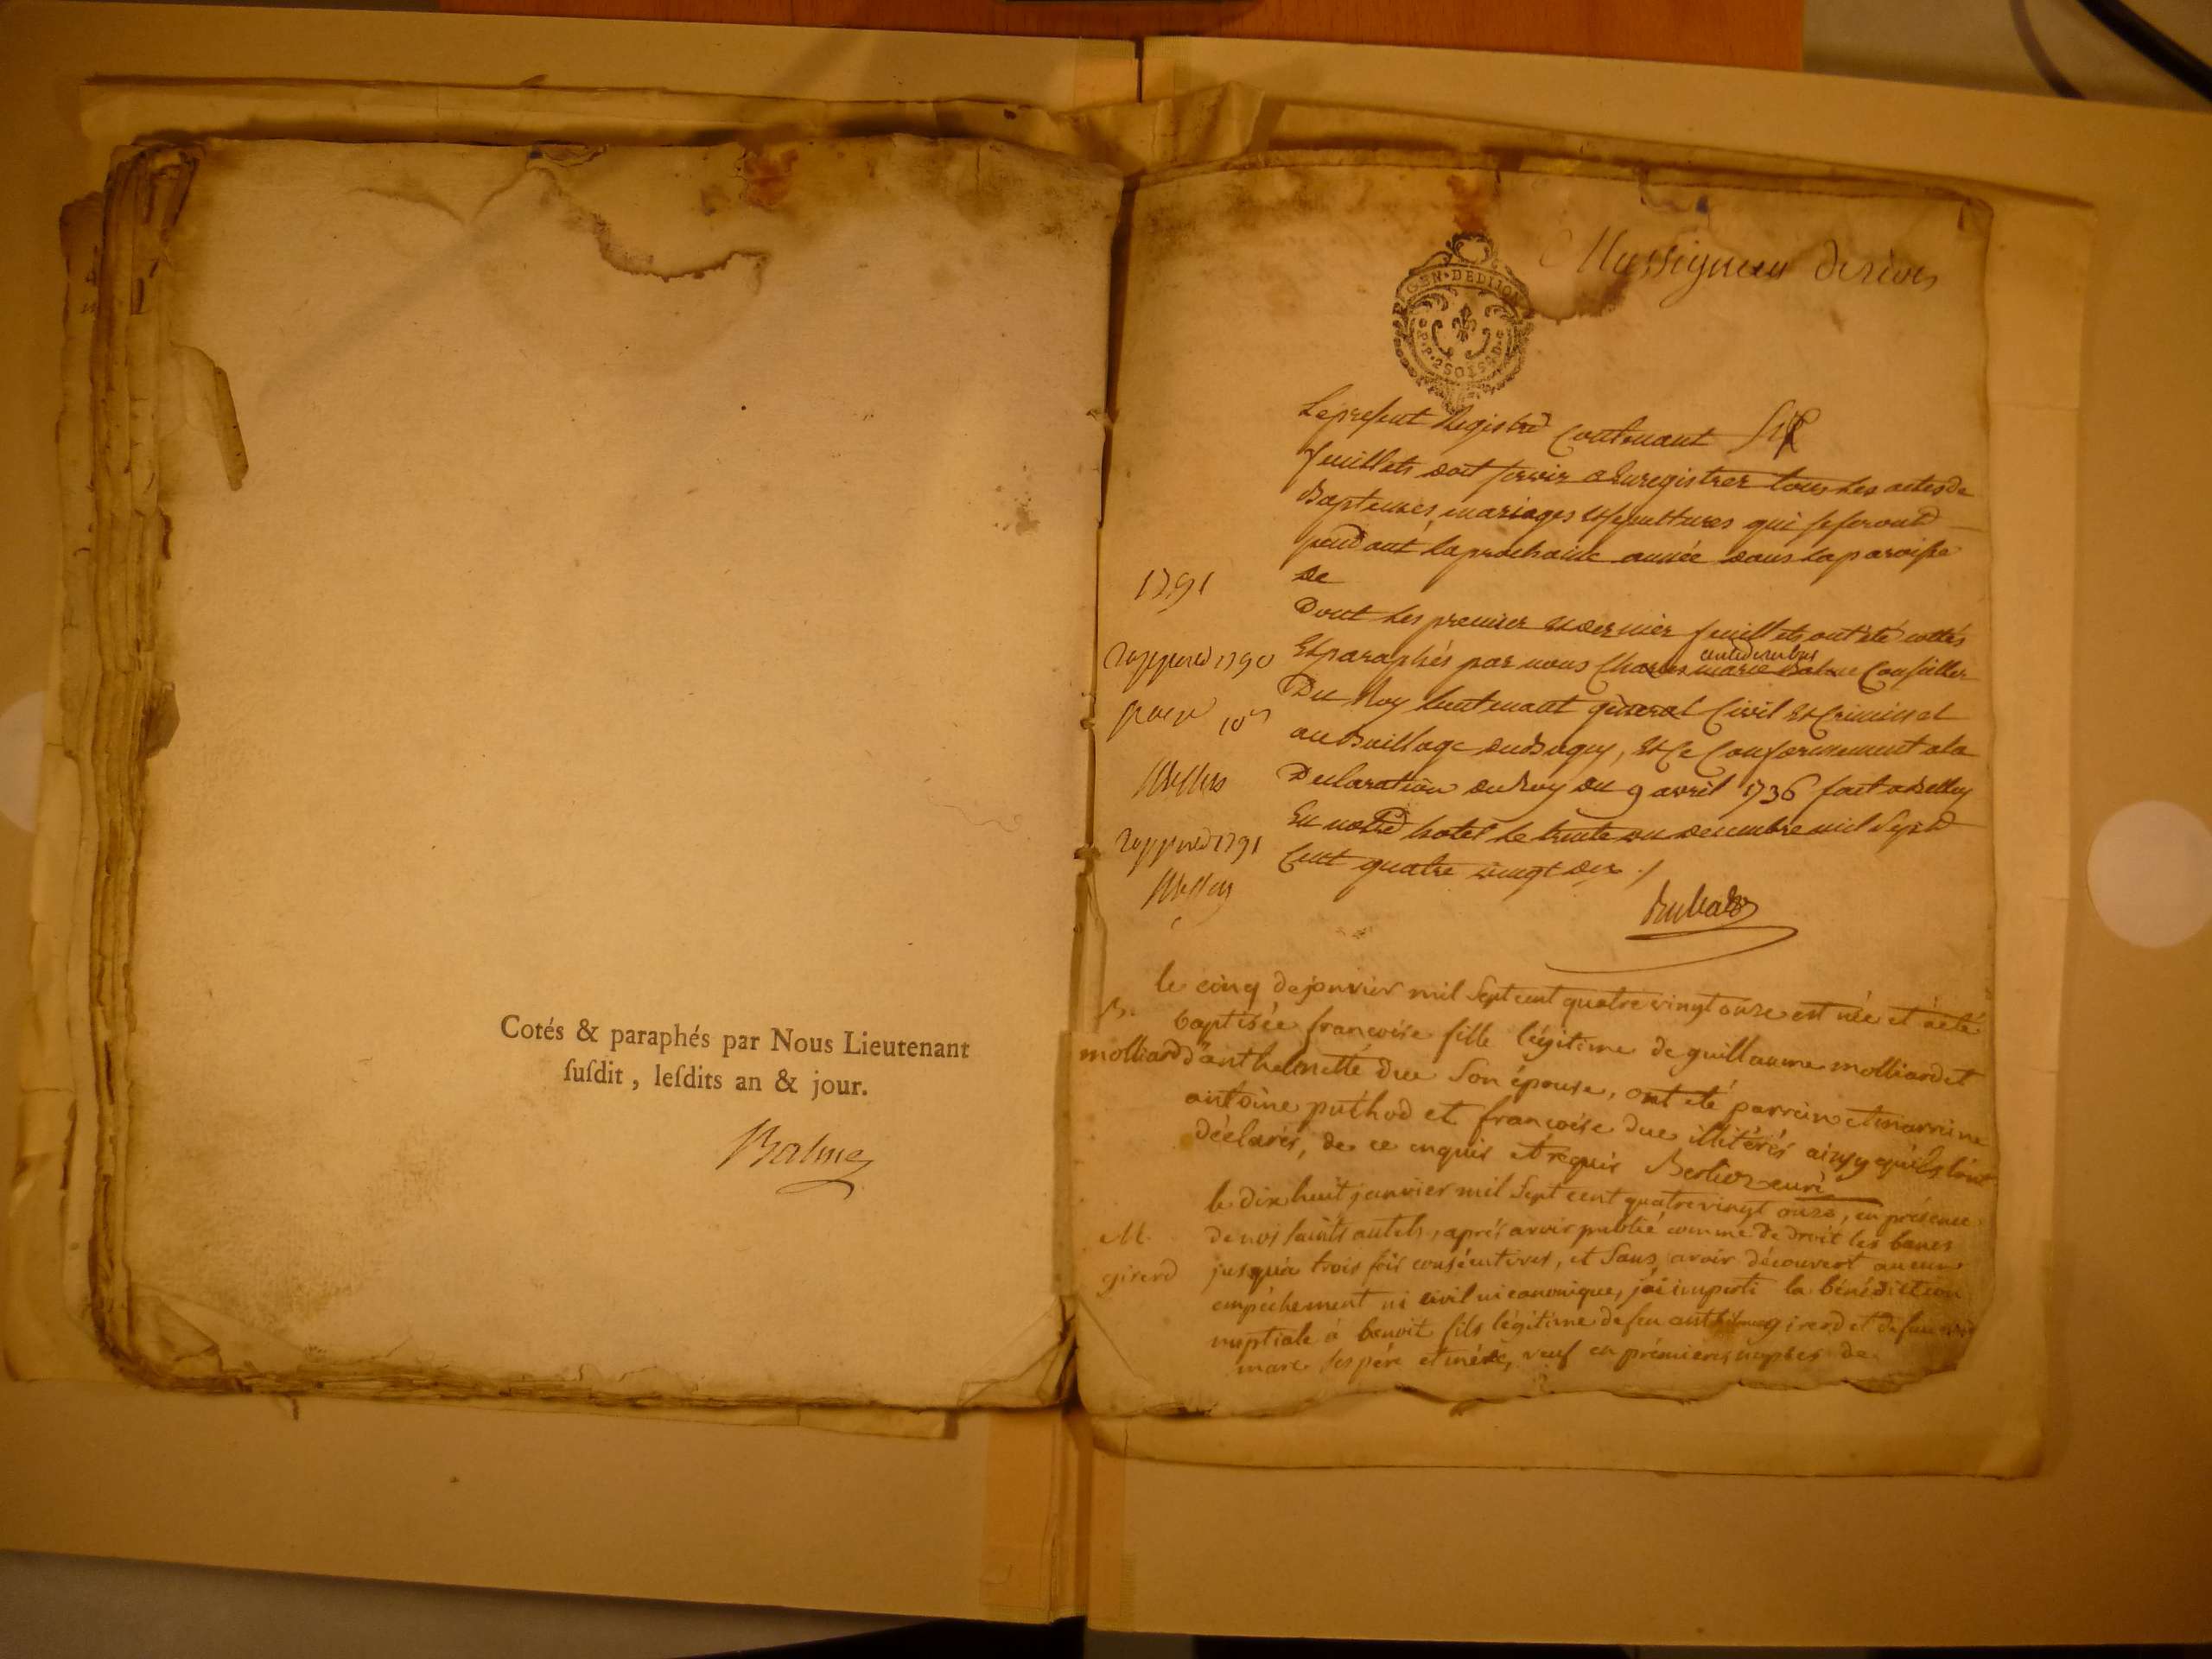 Cotés & paraphés par Nous Lieutenant
ſuſdit, leſdits an & jour.
Balme
Massigneu de rives
GEN·DEDIJON
Le present Registre Contenant Six
feuillets doit servir a Enregistrer tous les actes de
Baptemes, mariages et sepultures qui se feront
pendant la prochaine année dans la paroisse
de
Dont les premier et dernier feuillets ont été cottés
Et paraphés par nous Charles marie Balme Conseiller
Du Roy lieutenant géneral Civil et Criminel
au Baillage du Bugey, et ce Conformement a la
Declaration du Roy du 9 avril 1736 fait a Belley
En notre hotel le trente un decembre mil Sept
Cent quatre vingt dix ./.
1791
1790
1791
le cinq de janvier mil Sept cent quatre vingt onze est née et a été
B.
baptisée françoise fille légitime de guillaume molliard et
molliard d'anthelmette due Son épouse, ont été parrein et marreine
antoine puthod et françoise due illitérés ainsy qu'ils l'ont
déclarés, de ce enquis et réquis Berlioz curé
le dix huit janvier mil Sept cent quatre vingt onze, en présence
M. de nos saints autels, aprés avoir publié comme de droit les bancs
girerd jusqu'a trois fois consécutives, et Sans avoir découvert aucun
empêchement ni civil ni canonique, j'ai imparti la bénédiction
nuptiale à benoit fils légitime de feu anthelme girerd et de feue
mare ses pére et mére, veuf en prémieres nopces de